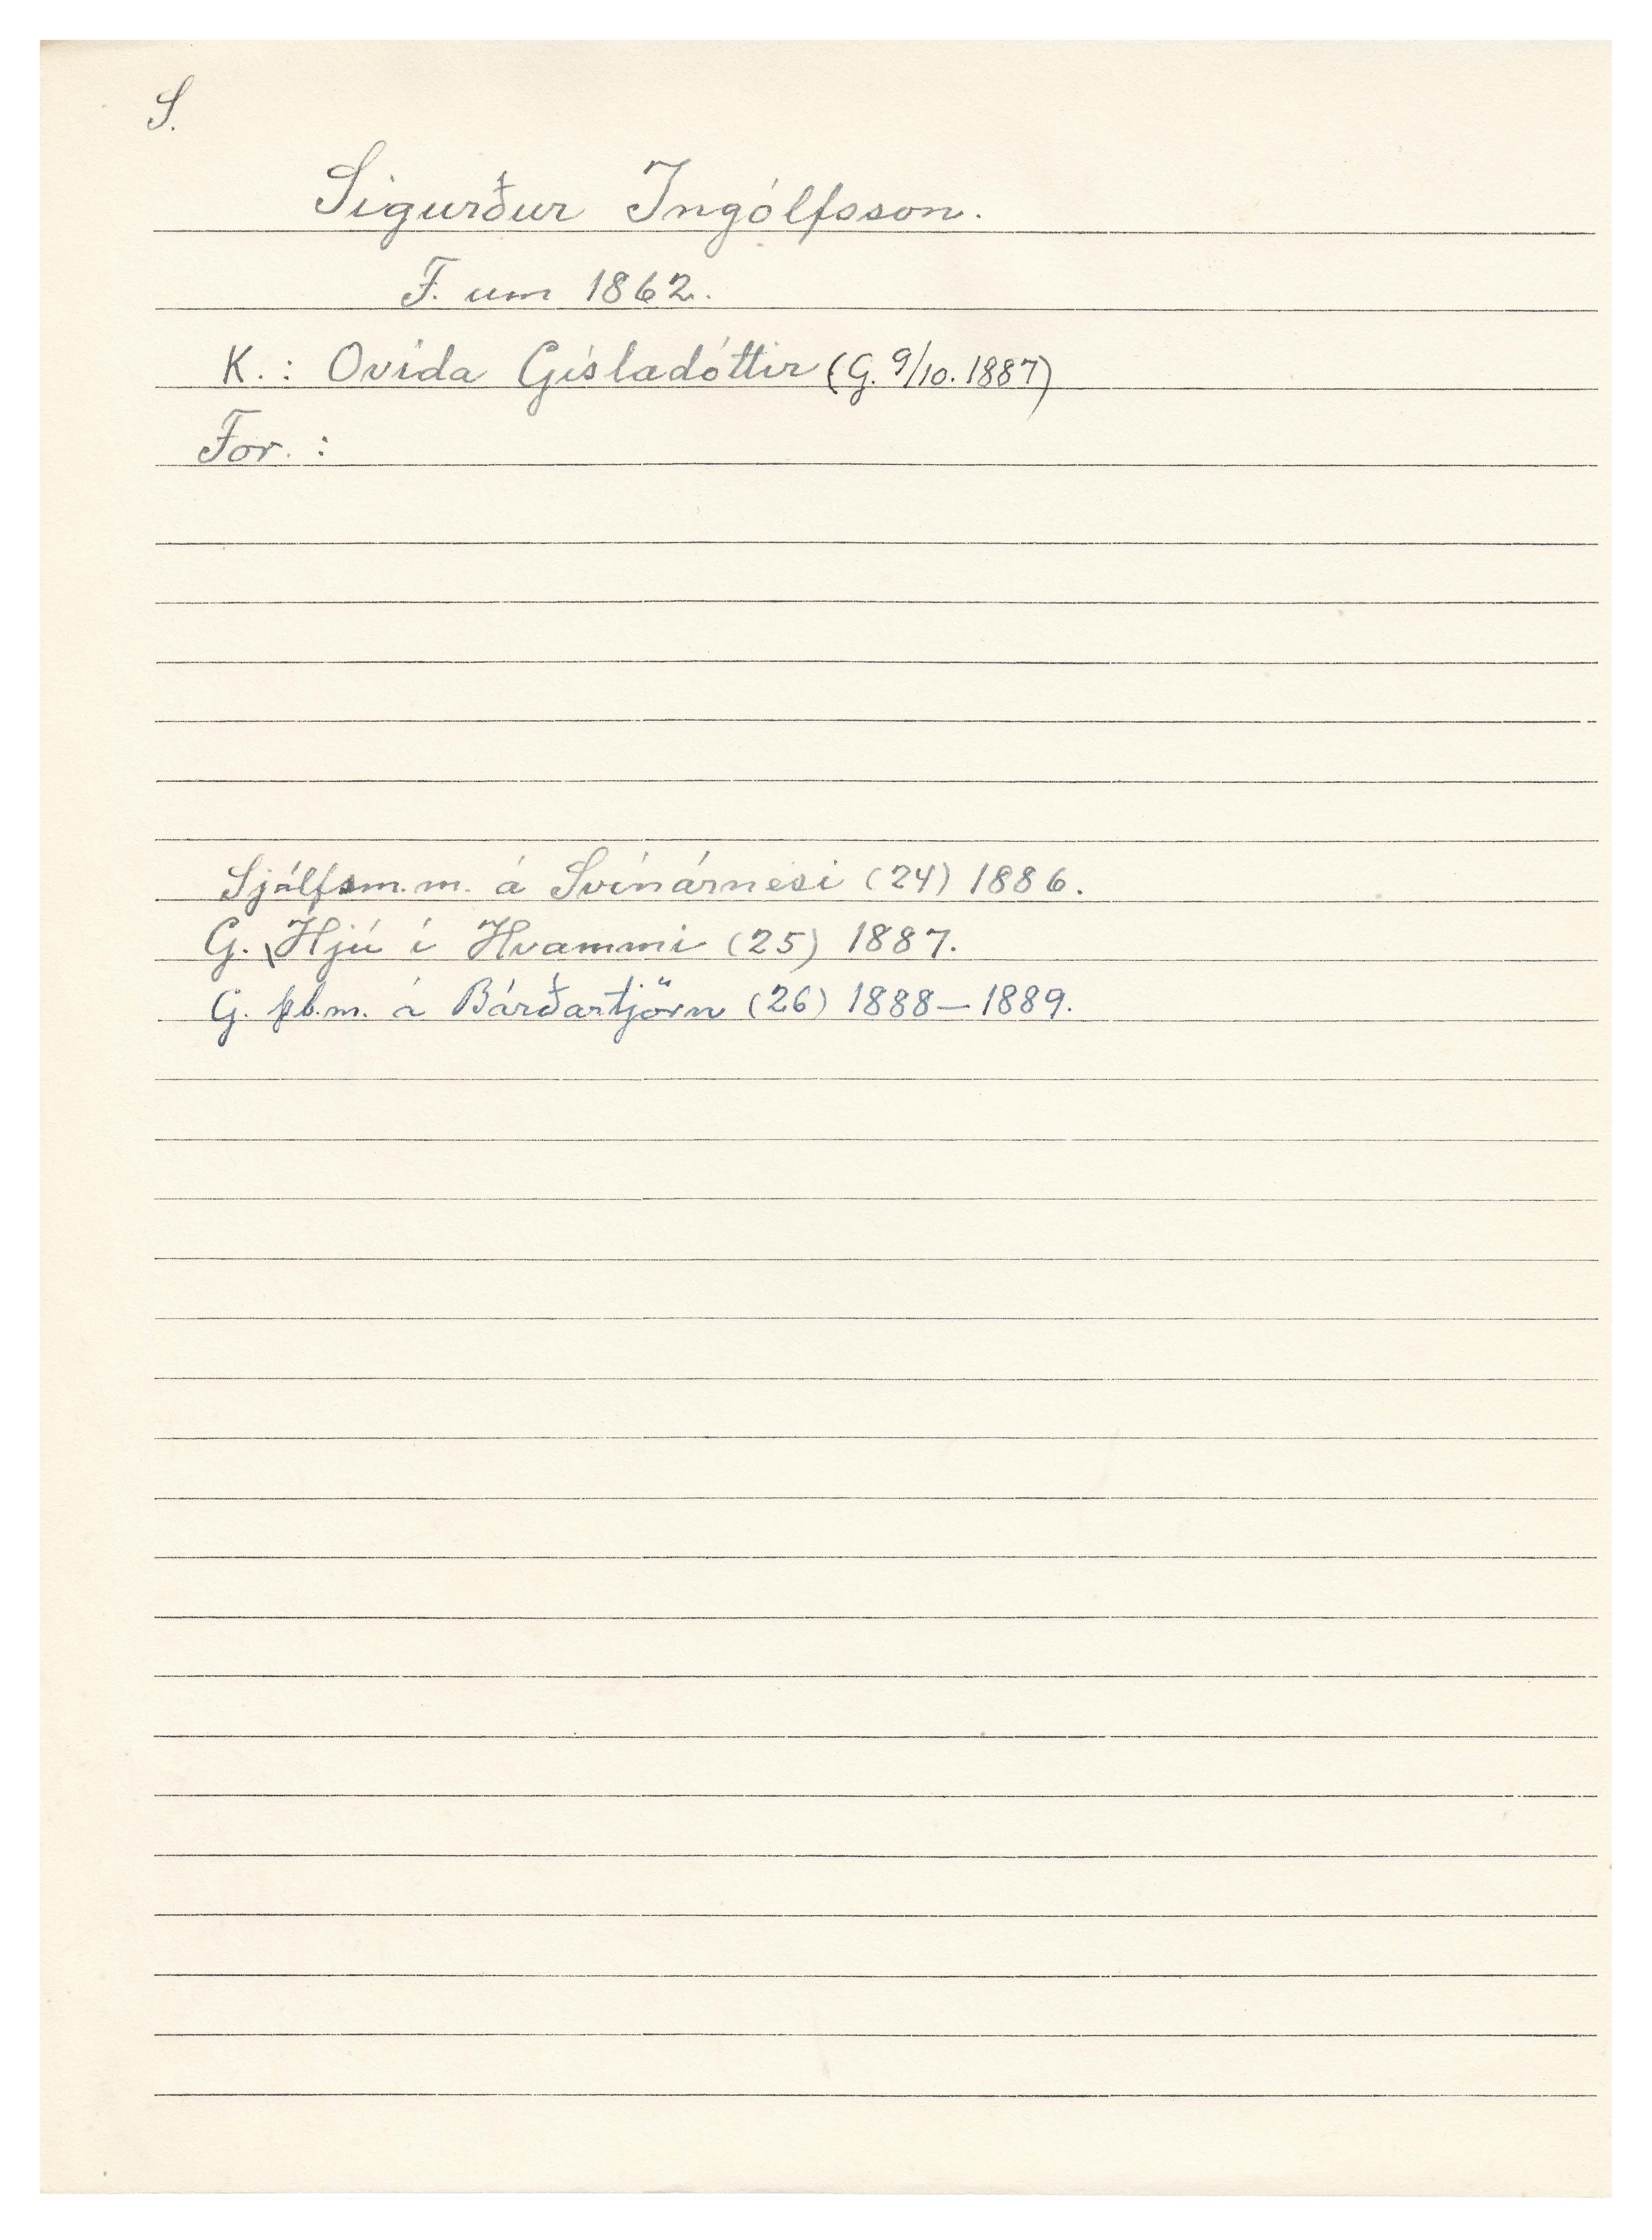 S.
Sigurður Ingólfsson.
F. um 1862.
K. : Ovida Gísladóttir (G. 9/10. 1887)
For. :
Sjálfsm.m. á Svínárnesi (24) 1886.
G. Hjú í Hvammi (25) 1887.
G. þb.m. á Bárðartjörn (26) 1888—1889.